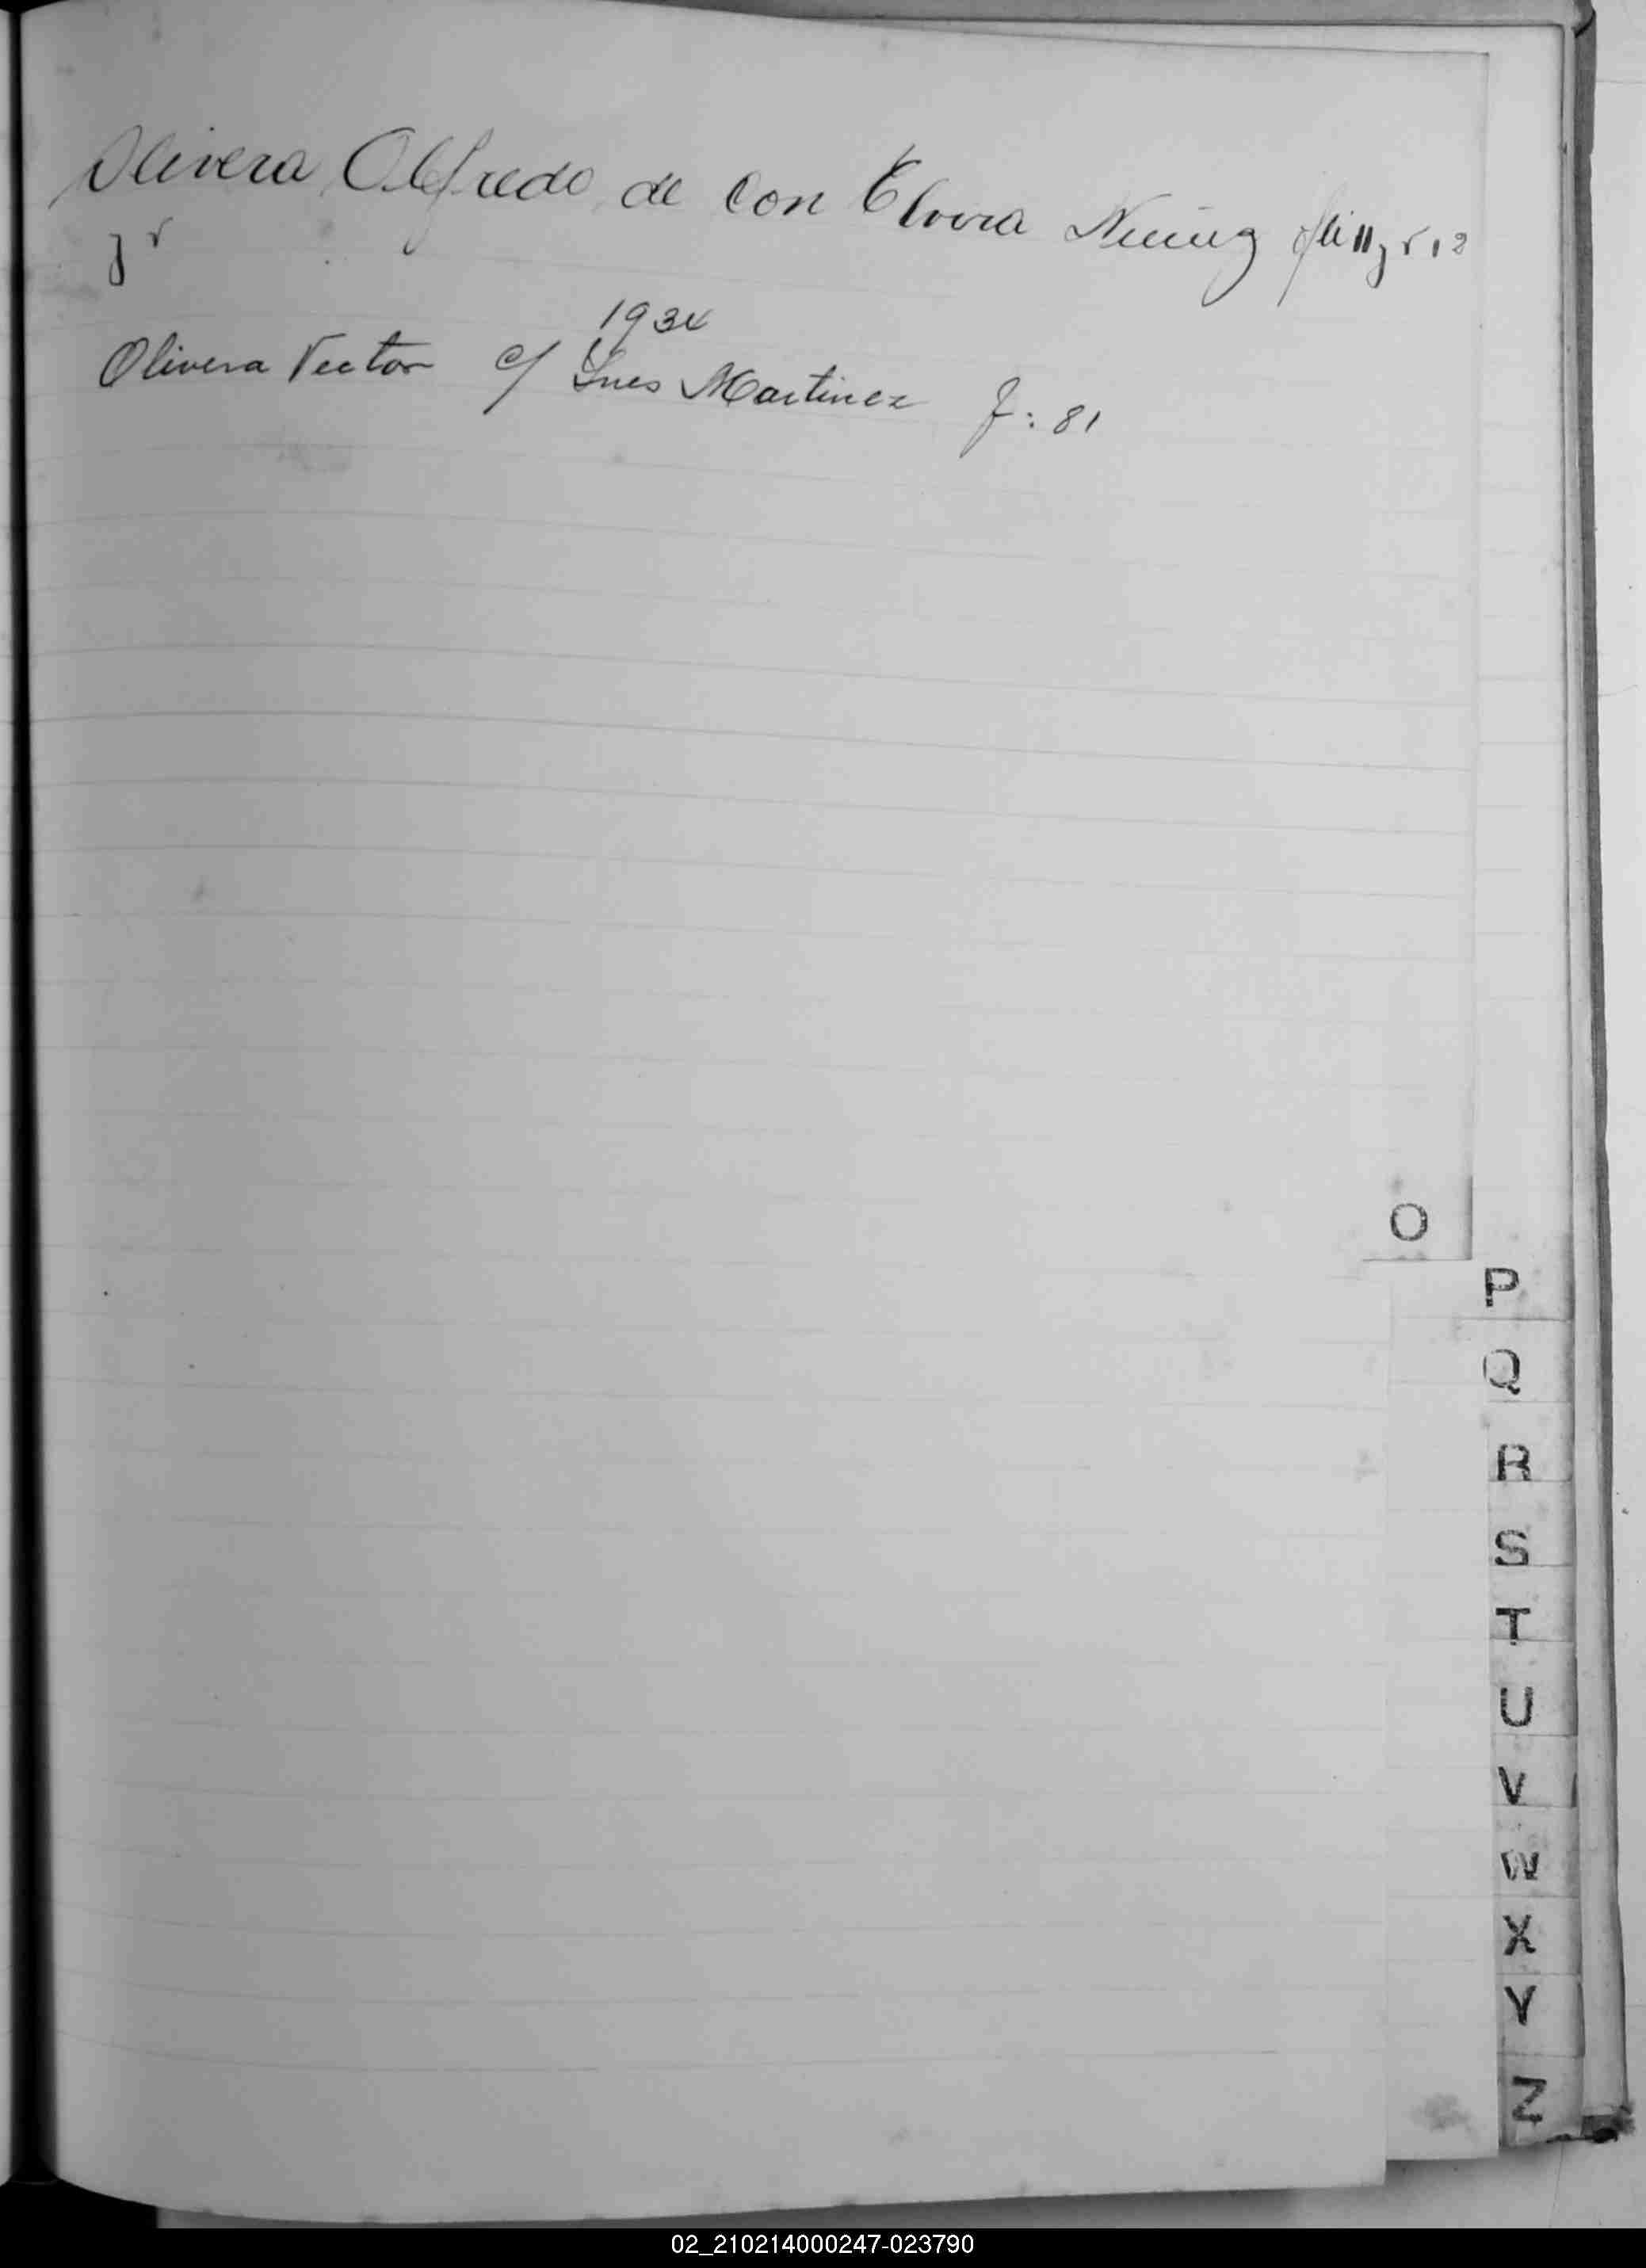 Olivera Alfredo de con Elvira Nuñez
1934
Olivera Vector c/ Ines Martinez f: 81
O
P
Q
R
S
T
U
V
W
X
Y
Z
02_210214000247-023790